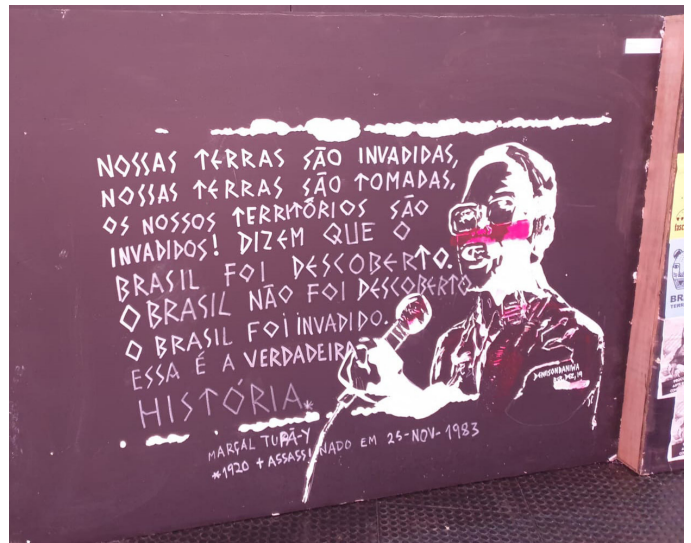 NOSSAS TERRAS SÃO INVADIDAS,
NOSSAS TERRAS SÃO TOMADAS,
OS NOSSOS TERRITÓRIOS SÃO
INVADIDOS! DIZEM QUE O
BRASIL FOI DESCOBERTO.
O BRASIL NÃO FOI DESCOBERTO
O BRASIL FOI INVADIDO.
ESSA É A VERDADEIRA
HISTÓRIA*
MARÇAL TUPÃ-Y
*1920 + ASSASSINADO EM 25-NOV-1983
DENILSONBANIWA